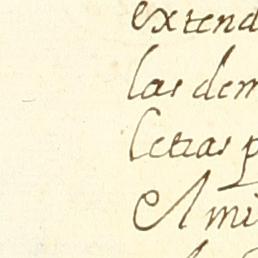 extend
las dem
letras p
A mi